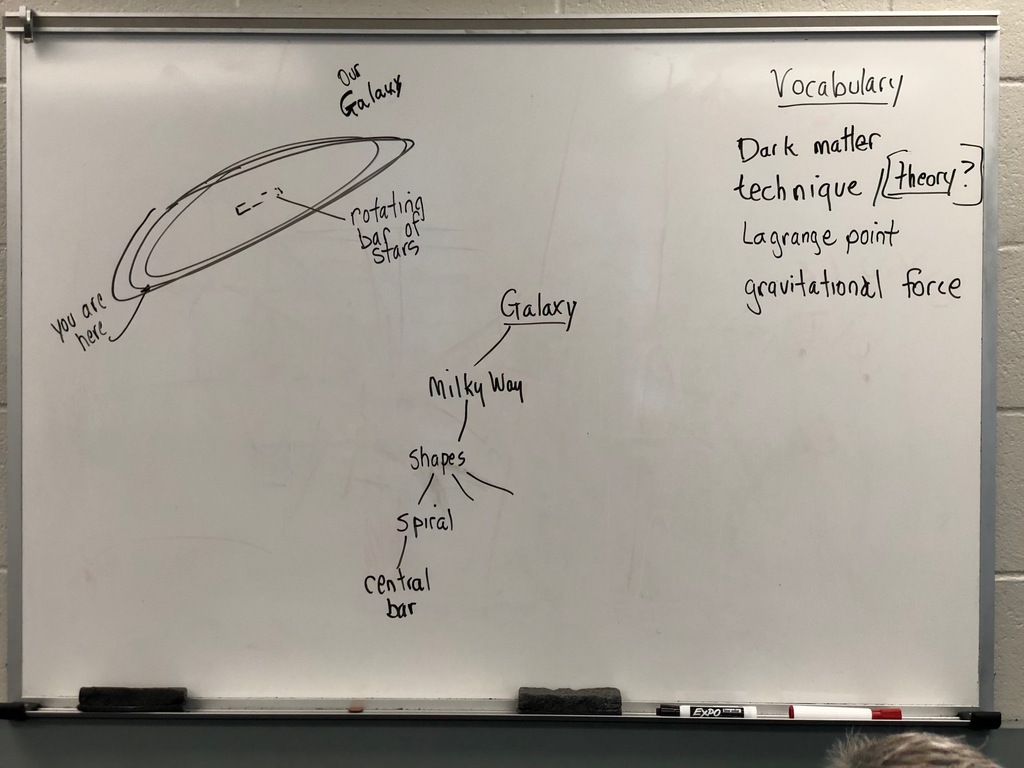 Our
Galaxy
rotating
bar of
stars
you are
here
Galaxy
Milky Way
Shapes
Spiral
central
bar
Vocabulary
Dark matter
technique / [theory?]
Lagrange point
gravitational force
EXPO